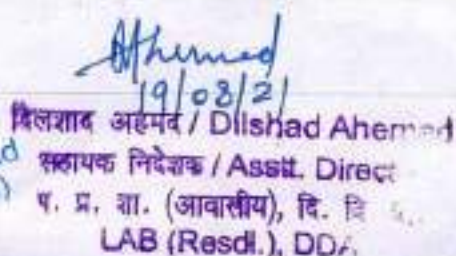 Ahemed
19/08/21
दिलशाद अहमद / Dilshad Ahemed
सहायक निदेशक / Asstt. Direct
प. प्र. शा. (आवासीय), दि. वि
LAB (Resdl.), DDA